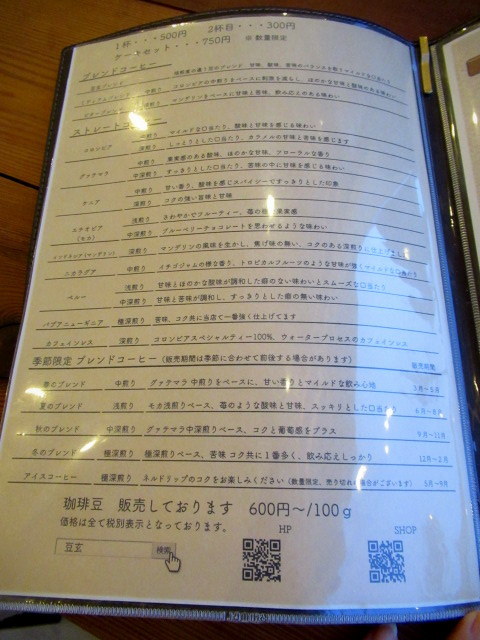 1杯・・・500円　2杯目・・・300円
ケーキセット・・・750円　※数量限定
ブレンドコーヒー
ストレートコーヒー
コロンビア 中煎り マイルドな口当たり、酸味と甘味を感じる味わい
深煎り しっとりとした口当たり、カラメルの甘味と苦味を感じます
グァテマラ 中煎り 果実感のある酸味、ほのかな甘味、フローラルな香り
中深煎り すっきりとした口当たり、苦味の中に甘味を感じる味わい
ケニア 中煎り 甘い香り、酸味を感じスパイシーですっきりとした印象
深煎り コクの強い旨味と甘味
エチオピア(モカ) 浅煎り さわやかでフルーティー、苺の様な果実感
中深煎り ブルーベリーチョコレートを思わせるような味わい
インドネシア(マンデリン) 深煎り マンデリンの風味を生かし、焦げ味の無い、コクのある深煎りに仕上げました
ニカラグア 中煎り イチゴジャムの様な香り、トロピカルフルーツのような甘味が強くマイルドな口当たり
ペルー 浅煎り 甘味とほのかな酸味が調和した癖のない味わいとスムーズな口当たり
中深煎り 甘味と苦味が調和し、すっきりとした癖の無い味わい
パプアニューギニア 極深煎り 苦味、コク共に当店で一番強く仕上げてます
カフェインレス 深煎り コロンビアスペシャルティー100%、ウォータープロセスのカフェインレス
季節限定 ブレンドコーヒー (販売期間は季節に合わせて前後する場合があります) 販売期間
春のブレンド 中煎り グァテマラ中煎りをベースに、甘い香りとマイルドな飲み心地 3月～5月
夏のブレンド 浅煎り モカ浅煎りベース、苺のような酸味と甘味、スッキリとした口当たり 6月～8月
秋のブレンド 中深煎り グァテマラ中深煎りベース、コクと葡萄感をプラス 9月～11月
冬のブレンド 極深煎り 極深煎りベース、苦味 コク共に1番多く、飲み応えしっかり 12月～2月
アイスコーヒー 極深煎り ネルドリップのコクをお楽しみください (数量限定、売り切れの場合がございます) 5月～9月
珈琲豆　販売しております　600円～/100g
価格は全て税別表示となっております。
HP
SHOP
豆玄 検索